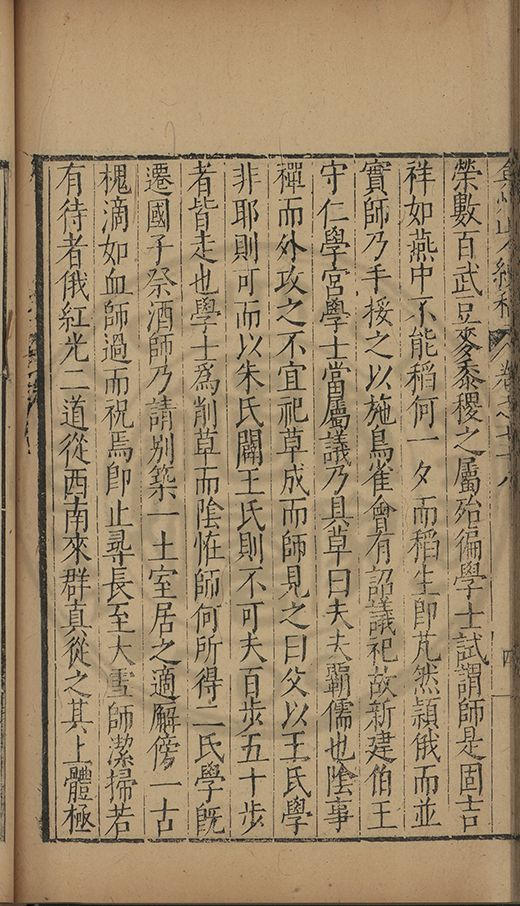 弇州山人續稿 卷之七十八 四
榮數百武豆麥黍稷之屬殆徧學士試謂師是固吉
祥如燕中不能稻何一夕而稻生卽芃然頴俄而並
實師乃手挼之以施鳥雀會有詔議祀故新建伯王
守仁學宮學士當屬議乃具草曰夫夫覇儒也陰事
禪而外攻之不宜祀草成而師見之曰父以王氏學
非耶則可而以朱氏闢王氏則不可夫百步五十步
者皆走也學士爲削草而陰恠師何所得二氏學旣
遷國子祭酒師乃請別築一土室居之適廨傍一古
槐滴如血師過而祝焉卽止尋長至大雪師潔掃若
有待者俄紅光二道從西南來群真從之其上體極